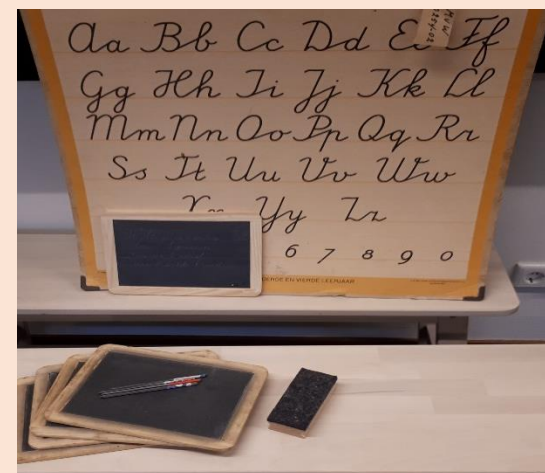 Aa Bb Cc Dd E Ff
Gg Hh Ii Jj Kk Ll
Mm Nn Oo Pp Qq Rr
Ss Tt Uu Vv Ww
Yy Zz
6 7 8 9 0
DERDE EN VIERDE LEERJAAR